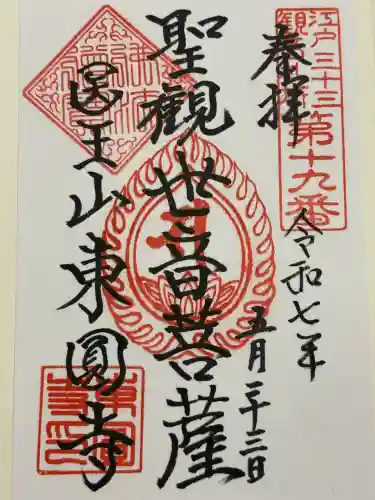 江戸三十三
観音
第十九番
奉拝
令和七年
五月二十三日
聖観世音菩薩
医王山東圓寺